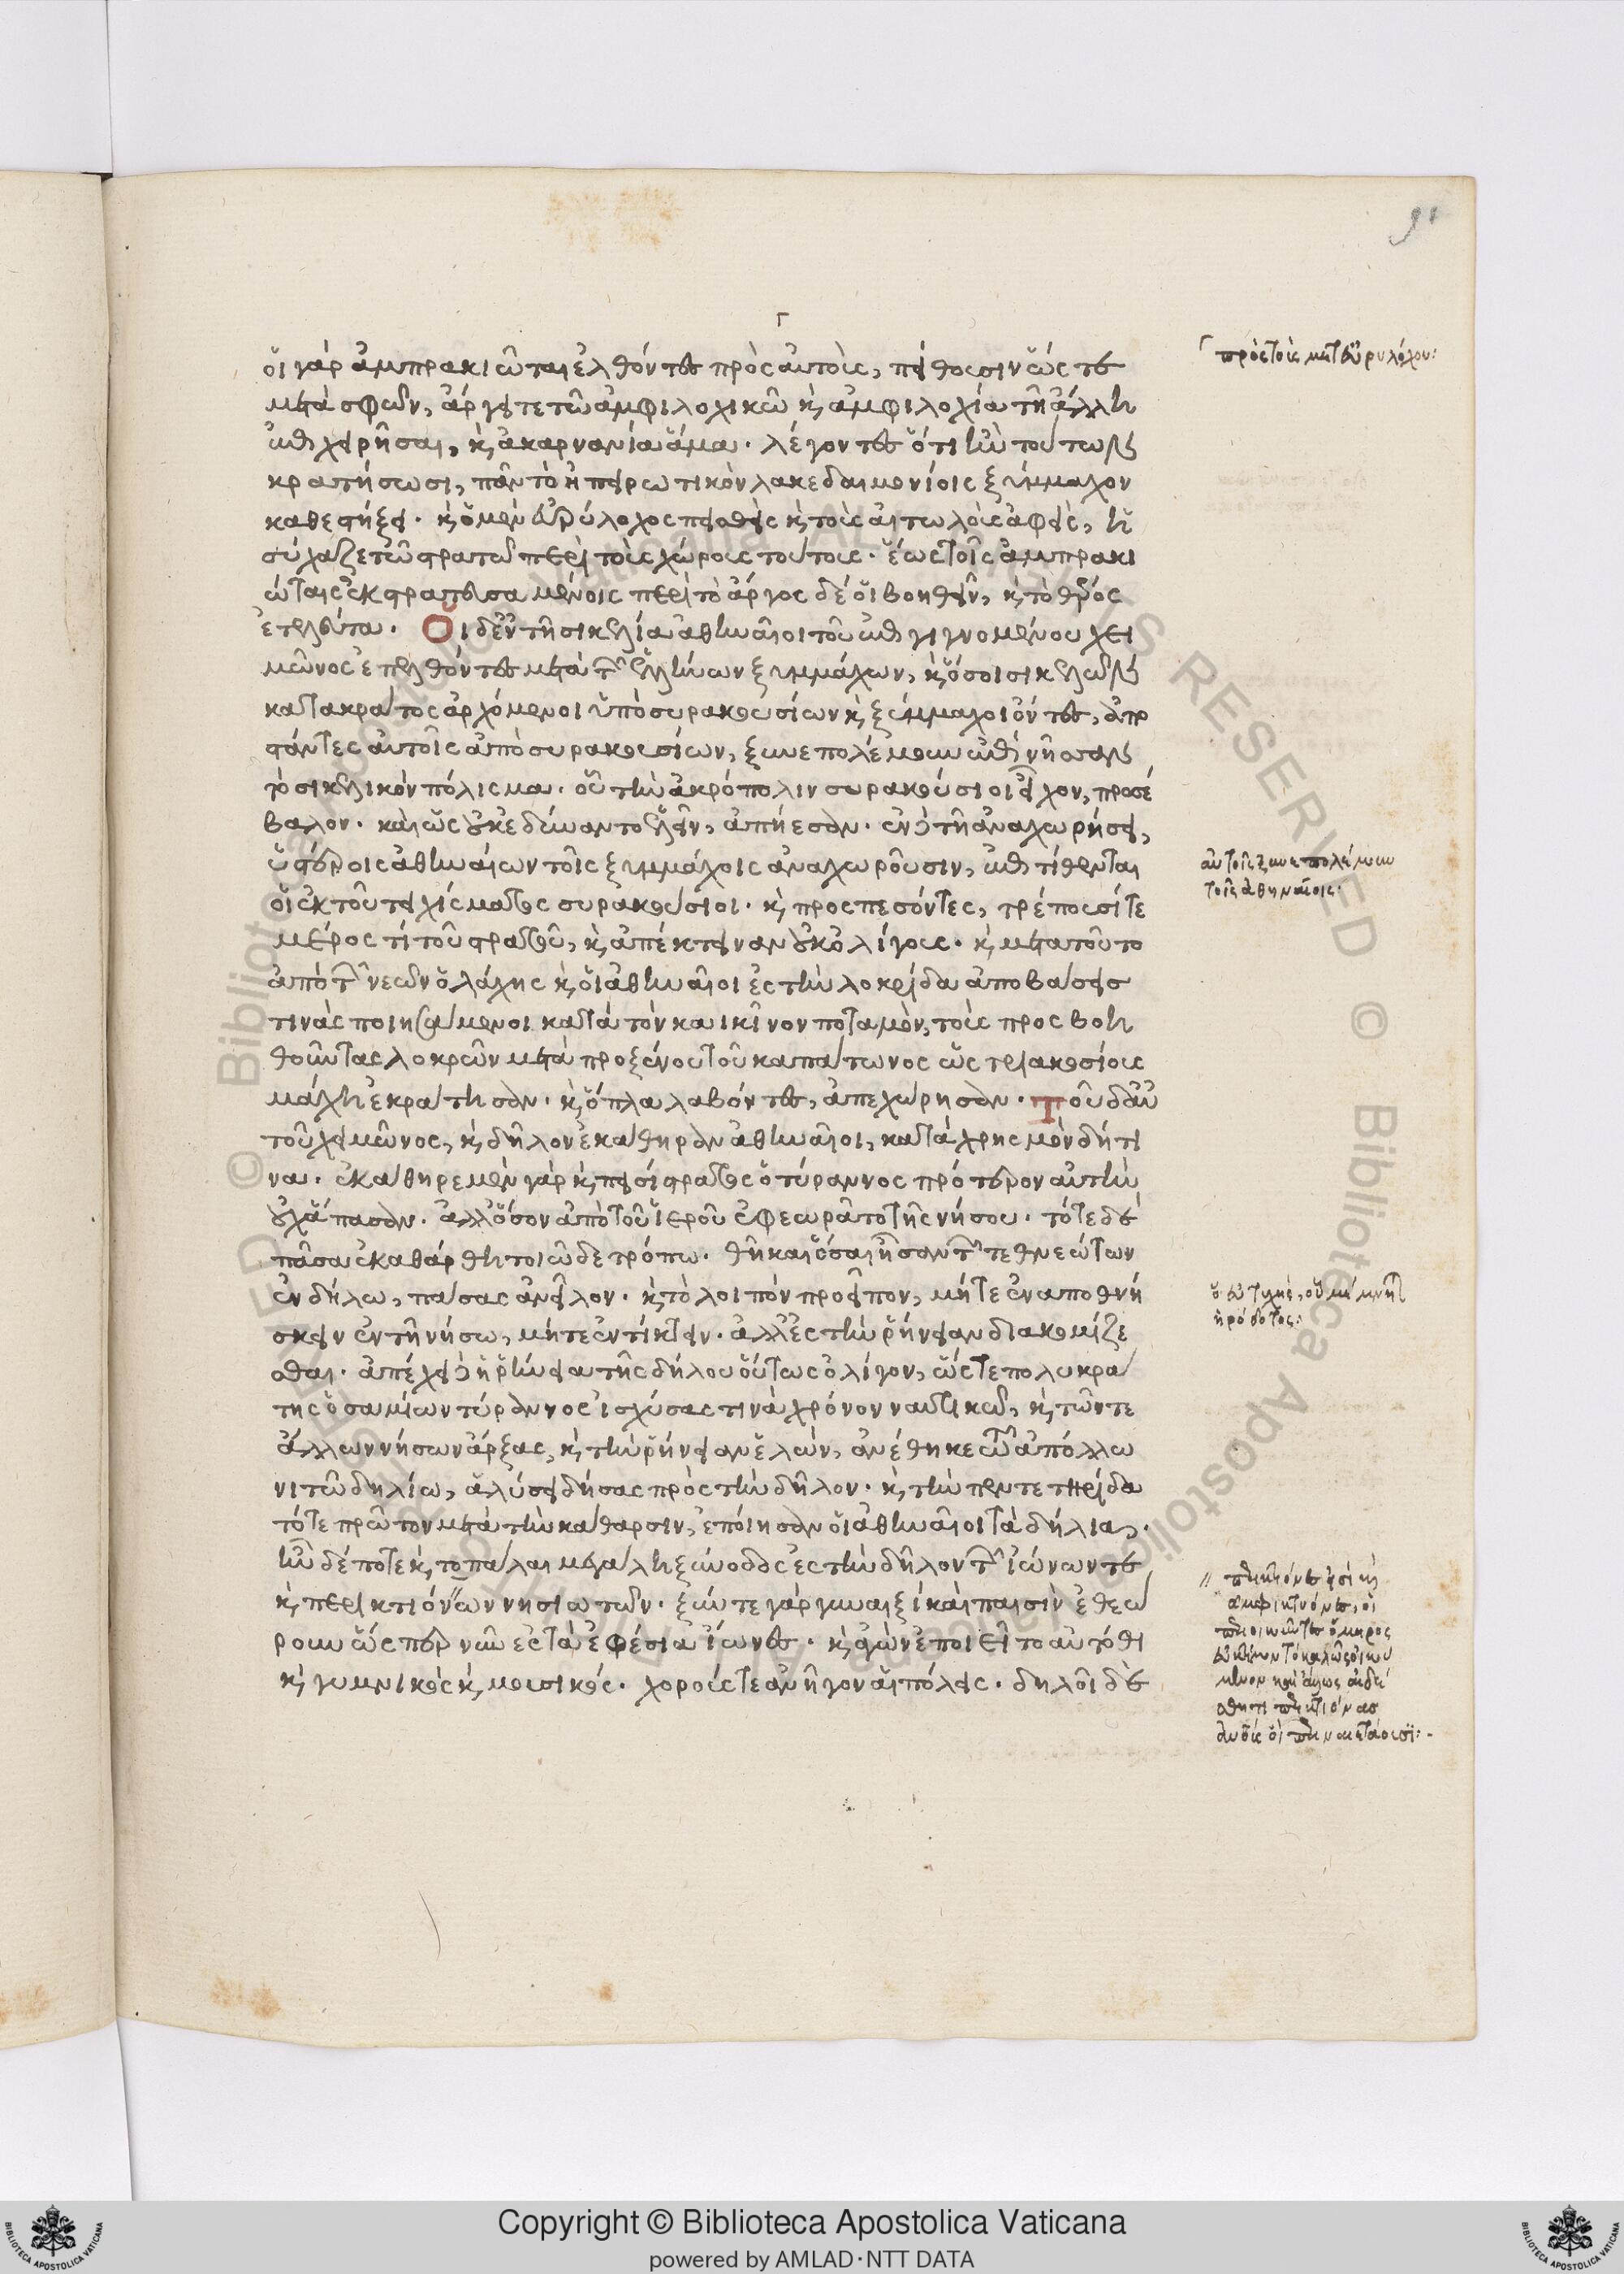 91
οἱ γὰρ ἀμπρακιῶται ἐλθόντες πρὸς αὐτοὺς, πείθουσιν ὥστε
μετὰ σφῶν, ἄργει τε τῶ ἀμφιλοχικῶ κ̀ ἀμφιλοχία τῆ ἄλλη
ἐπιχειρῆσαι, κ̀ ἀκαρνανία ἅμα· λέγοντες ὅτι ἢν τούτων
κρατήσωσι, πᾶν τὸ ἠπειρωτικὸν λακεδαιμονίοις ξύμμαχον
καθεστήξει· κ̀ ὁ μὲν εὐρύλοχος πεισθεὶς κ̀ τοὺς αἰτωλοὺς ἀφεὶς, ἡ
σύχαζε τῶ στρατῶ περὶ τοὺς χώρους τούτους· ἕως τοῖς ἀμπρακι
ώταις ἐκστρατευσαμένοις περὶ τὸ ἄργος δέοι βοηθεῖν, κ̀ τὸ θέρος
ἐτελεύτα· Οἱ δ' ἐν τῆ σικελία ἀθηναῖοι τοῦ ἐπιγιγνομένου χει
μῶνος ἐπελθόντες μετὰ τῶν ἑλλήνων ξυμμάχων, κ̀ ὅσοι σικελῶν
κατακράτος ἀρχόμενοι ὑπὸ συρακουσίων κ̀ ξύμμαχοι ὄντες, ἀπο
στάντες αὐτοῖς ἀπὸ συρακουσίων, ξυνεπολέμουν ἐπ' ἴνησσαν
τὸ σικελικὸν πόλισμα· οὗ τὴν ἀκρόπολιν συρακούσιοι εἶχον, προσέ
βαλον· καὶ ὡς οὐκ ἐδύναντο ἑλεῖν, ἀπήεσαν· ἐν δὲ τῆ ἀναχωρήσει,
ὑστέροις ἀθηναίων τοῖς ξυμμάχοις ἀναχωροῦσιν, ἐπιτίθενται
οἱ ἐκ τοῦ τειχίσματος συρακούσιοι· κ̀ προσπεσόντες, τρέπουσί τε
μέρος τι τοῦ στρατοῦ, κ̀ ἀπέκτειναν οὐκ ὀλίγους· κ̀ μετὰ τοῦτο
ἀπὸ τῶν νεῶν ὁ λάχης κ̀ οἱ ἀθηναῖοι ἐς τὴν λοκρίδα ἀποβάσεις
τινὰς ποιησάμενοι κατὰ τὸν καικῖνον ποταμὸν, τοὺς προσβοη
θοῦντας λοκρῶν μετὰ προξένου τοῦ καπάτωνος ὡς τριακοσίους
μάχη ἐκράτησαν· κ̀ ὅπλα λαβόντες, ἀπεχώρησαν· Τοῦ δ' αὐ
τοῦ χειμῶνος, κ̀ δῆλον ἐκάθηραν ἀθηναῖοι, κατὰ χρησμὸν δή τι
να· ἐκάθηρε μὲν γὰρ κ̀ πεισίστρατος ὁ τύραννος πρότερον αὐτὴν
οὐχ ἅπασαν· ἀλλ' ὅσον ἀπὸ τοῦ ἱεροῦ ἐφεωρᾶτο τῆς νήσου· τότε δὲ
πᾶσα ἐκαθάρθη τοιῶδε τρόπω· θῆκαι ὅσαι ἦσαν τῶν τεθνεώτων
ἐν δήλω, πάσας ἀνεῖλον· κ̀ τὸ λοιπὸν προεῖπον, μήτε ἐναποθνή
σκειν ἐν τῆ νήσω, μήτε ἐντίκτειν· ἀλλ' ἐς τὴν ῥήνειαν διακομίζε
σθαι· ἀπέχει δὲ ἡ ῥήνεια τῆς δήλου οὕτως ὀλίγον, ὥστε πολυκρά
της ὁ σαμίων τύραννος ἰσχύσας τινὰ χρόνον ναυτικῶ, κ̀ τῶν τε
ἄλλων νήσων ἄρξας, κ̀ τὴν ῥήνειαν ἑλὼν, ἀνέθηκε τῶ ἀπόλλω
νι τῶ δηλίω, ἁλύσει δήσας πρὸς τὴν δῆλον· κ̀ τὴν πεντετηρίδα
τότε πρῶτον μετὰ τὴν κάθαρσιν, ἐποίησαν οἱ ἀθηναῖοι τὰ δήλια·
ἦν δέ ποτε κ̀ τοπάλαι μεγάλη ξύνοδος ἐς τὴν δῆλον τῶν ἰώνων τε
κ̀ περικτιόνων νησιωτῶν· ξύν τε γὰρ γυναιξὶ καὶ παισὶν ἐθεώ
ρουν ὥσπερ νῦν ἐς τὰ ἐφέσια ἴωνες· κ̀ ἀγὼν ἐποιεῖτο αὐτόθι
κ̀ γυμνικὸς κ̀ μουσικός· χορούς τε ἀνῆγον αἱ πόλεις· δηλοῖ δὲ
πρὸς τοὺς μετ' εὐρυλόχου:
αὐτοῖς ξυνεπολέμουν
τοῖς ἀθηναίοις·
οὗ μέμνηται
ἡρόδοτος: